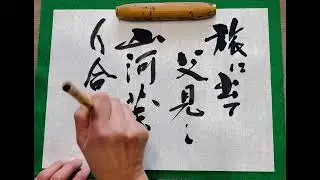 旅に出て
父見し
山河
合